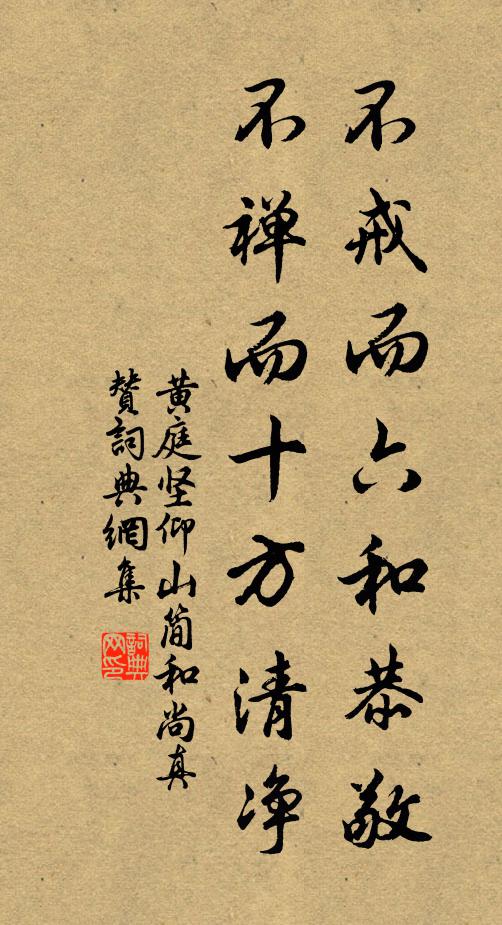 不戒而六和恭敬
不禅而十方清净
黄庭坚仰山简和尚真
赞詞典網集
詞典
网印